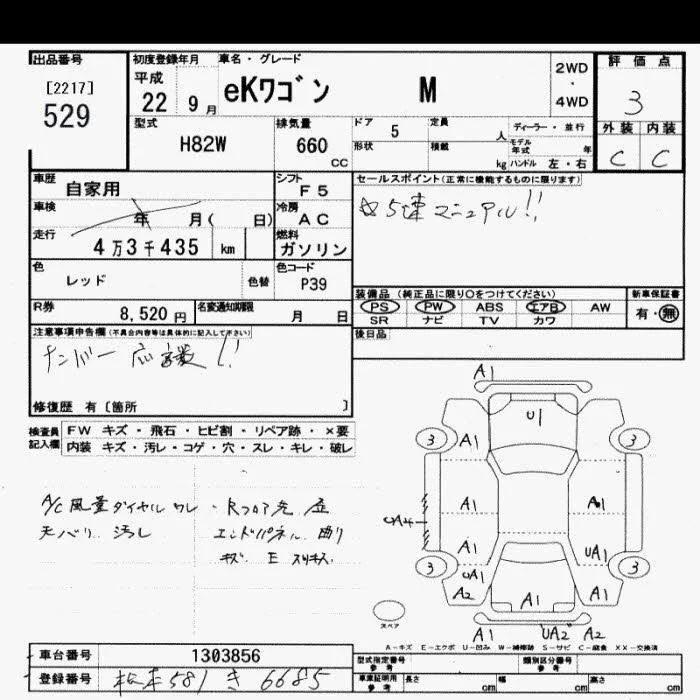 出品番号
[2217]
529
初度登録年月
平成
22 9月
車名・グレード
eKワゴン M
2WD
・
4WD
評価点
3
外装 内装
C C
型式
H82W
排気量
660
CC
ドア 5
定員 人
形状
積載 kg
ディーラー・並行
モデル年式 年
ハンドル 左・右
車歴
自家用
シフト
F5
車検
年 月( 日)
冷房
AC
走行
4万3千435 km
燃料
ガソリン
色
レッド
色替
色コード
P39
R券 8,520円
名変通知期限 月 日
セールスポイント(正常に機能するものに限ります)
☆5速マニュアル!!
装備品(純正品に限り○をつけてください)
PS PW ABS エアB AW
SR ナビ TV カワ
新車保証書
有・無
後日品
注意事項申告欄(不具合内容等は具体的に記入して下さい)
ナンバー応談!!
修復歴 有〔箇所 〕
検査員
記入欄
FW キズ・飛石・ヒビ割・リペア跡・×要
内装 キズ・汚レ・コゲ・穴・スレ・キレ・破レ
A/C風量ダイヤルワレ
天バリ 汚レ
・Rフロア先
エンドパネル 曲り
キズ E
A1
U1
3 3
A1
A1 A1
A1 UA1
3 3
UA1
A2 A1 A1
スペア
A1 UA2 A2
A-キズ E-エクボ U-凹み W-補修跡 S-サビ C-腐食 XX-交換済
車台番号 1303856
登録番号 581 き 6685
型式指定番号
参考
類別区分番号
参考
車庫証明用
参考
長さ cm 幅 cm 高さ cm